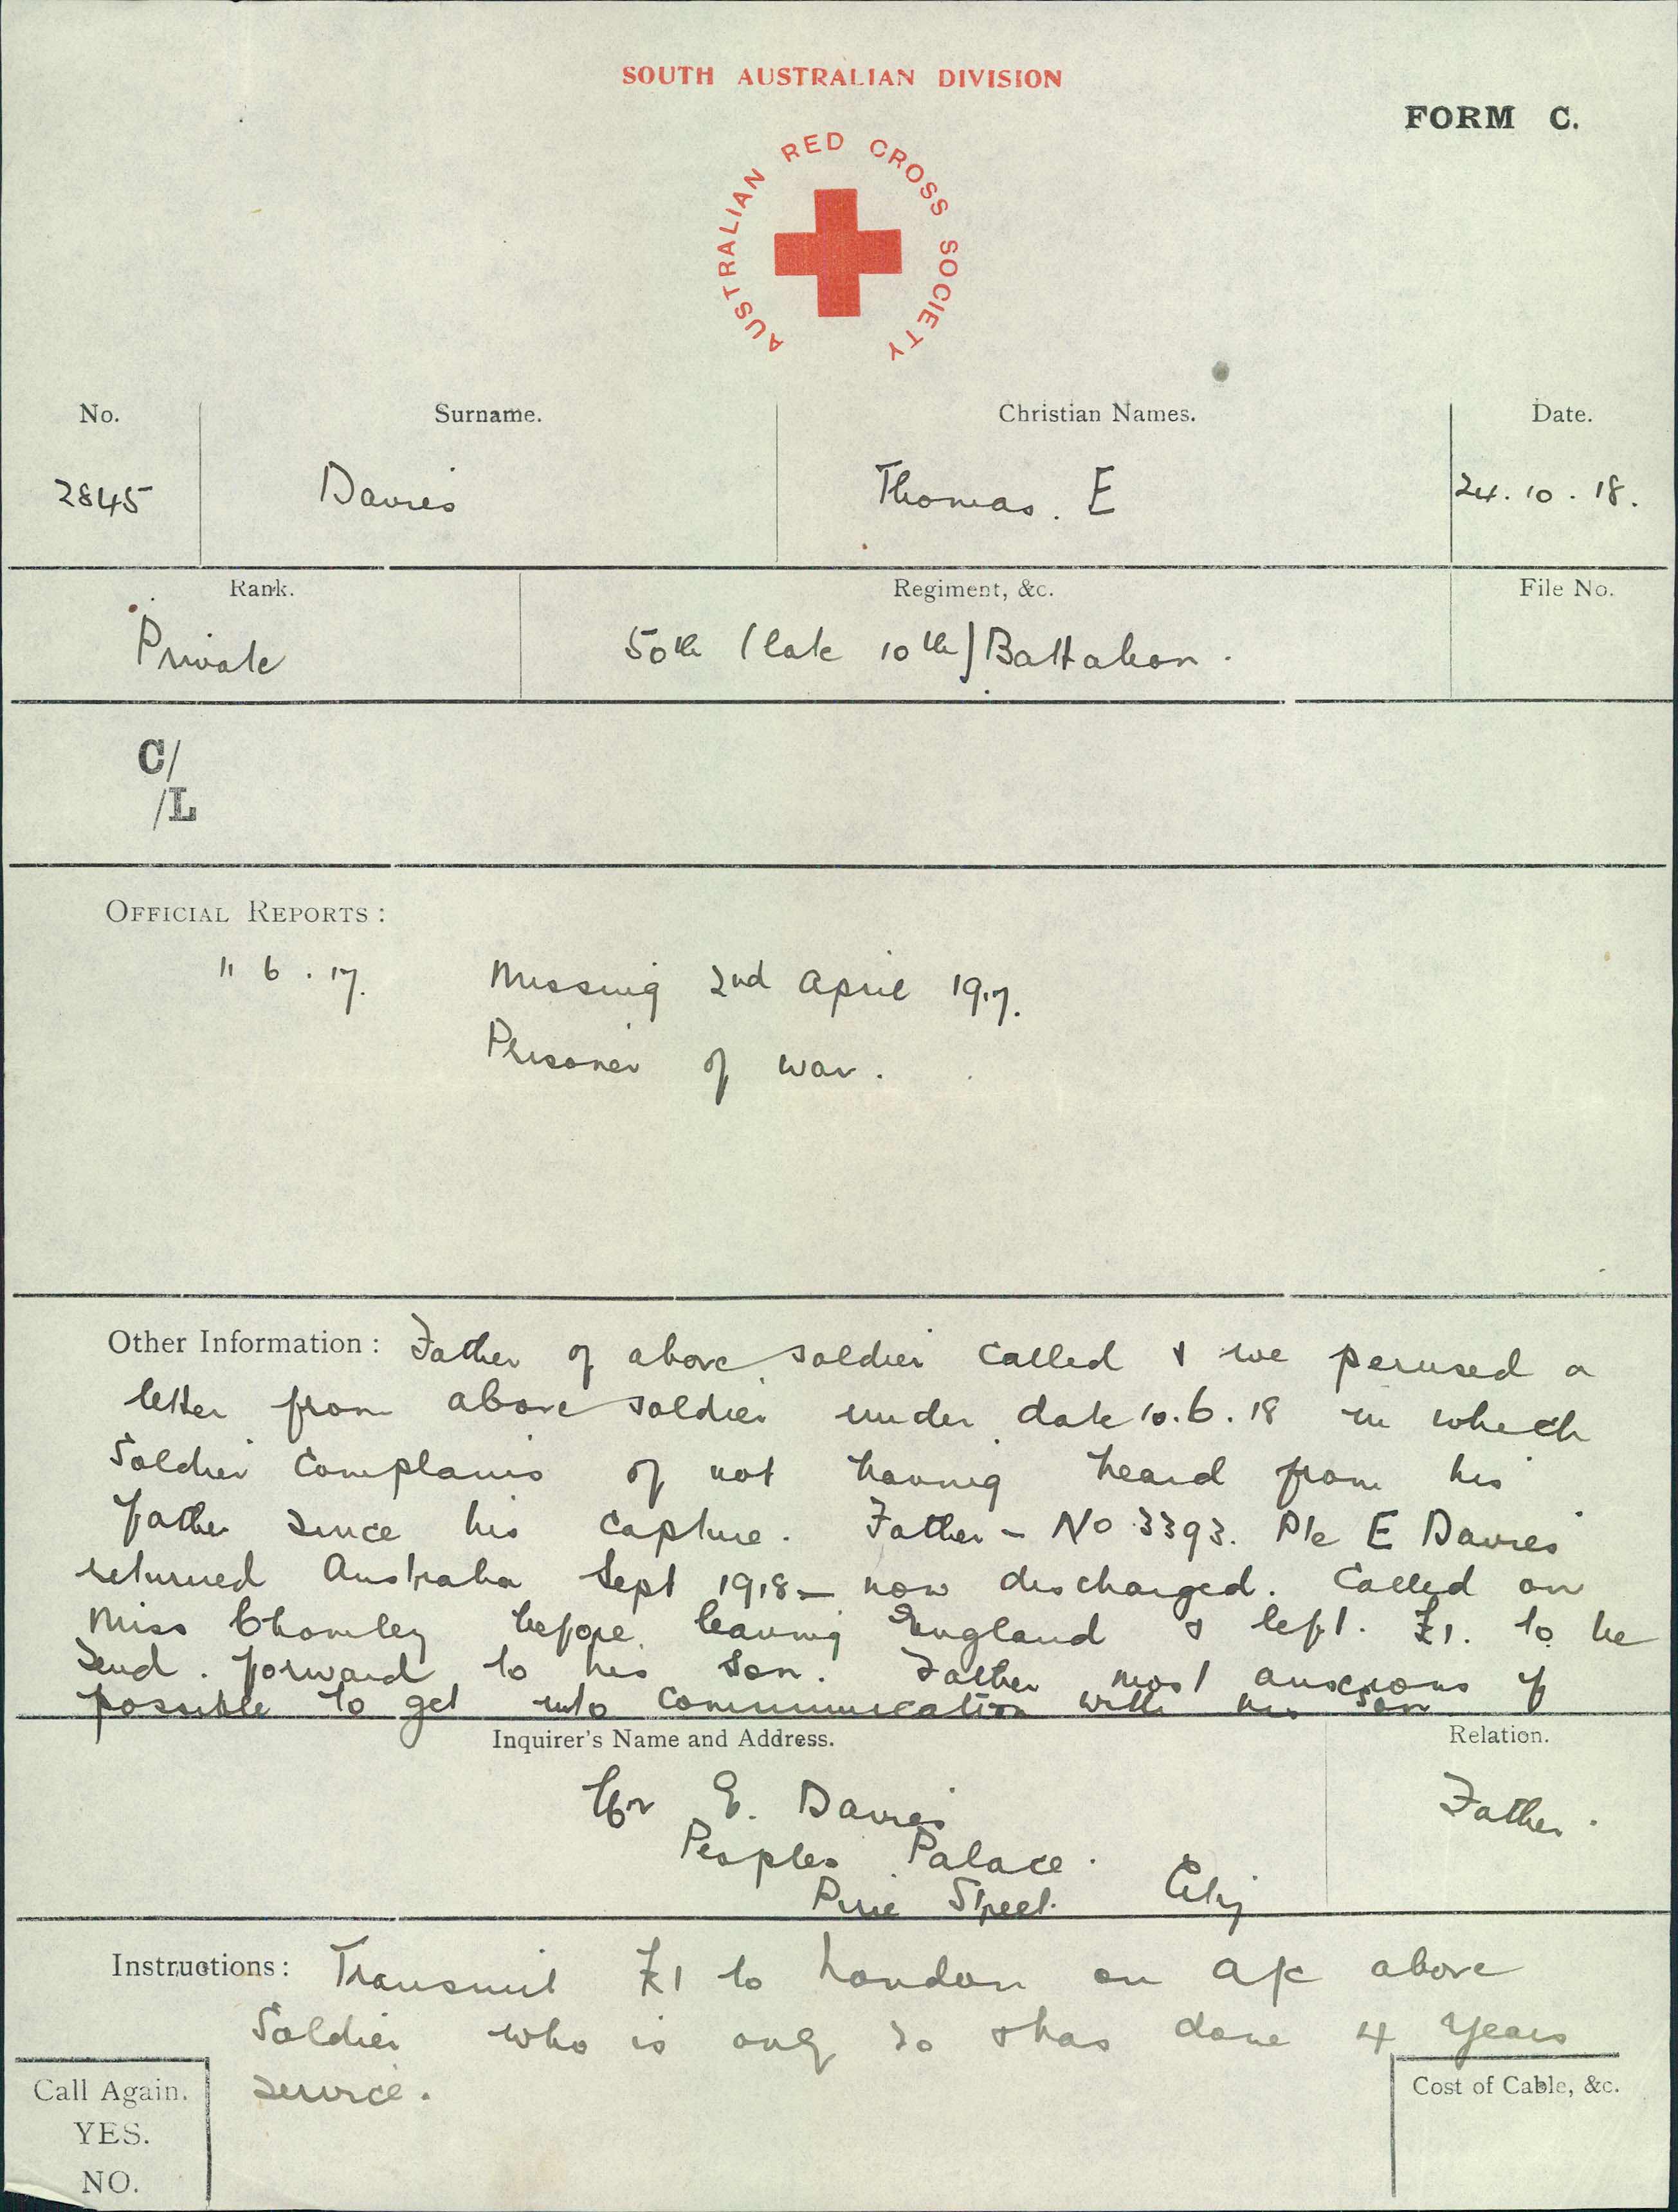 SOUTH AUSTRALIAN DIVISION
FORM C.
AUSTRALIAN RED CROSS SOCIETY
No. Surname. Christian Names. Date.
2845 Davies Thomas. E 24.10.18.
Rank. Regiment, &c. File No.
Private 50th (late 10th) Battalion.
C/
/L
OFFICIAL REPORTS:
11 6.17. Missing 2nd April 1917.
Prisoner of war.
Other Information: Father of above soldier called & we perused a
letter from above soldier under date 10.6.18 in which
Soldier complains of not having heard from his
father since his capture. Father - No 3393. Pte E Davies
returned Australia Sept 1918 - now discharged. Called on
Miss Chomley before leaving England & left. £1. to be
send. forward to his son. Father most anxcious if
possible to get into communication with his son
Inquirer's Name and Address. Relation.
Mr E. Davies Father.
Peoples Palace.
Pirie Street. City
Instructions: Transmit £1 to London on a/c above
Soldier who is only 20 & has done 4 years
service.
Call Again. Cost of Cable, &c.
YES.
NO.